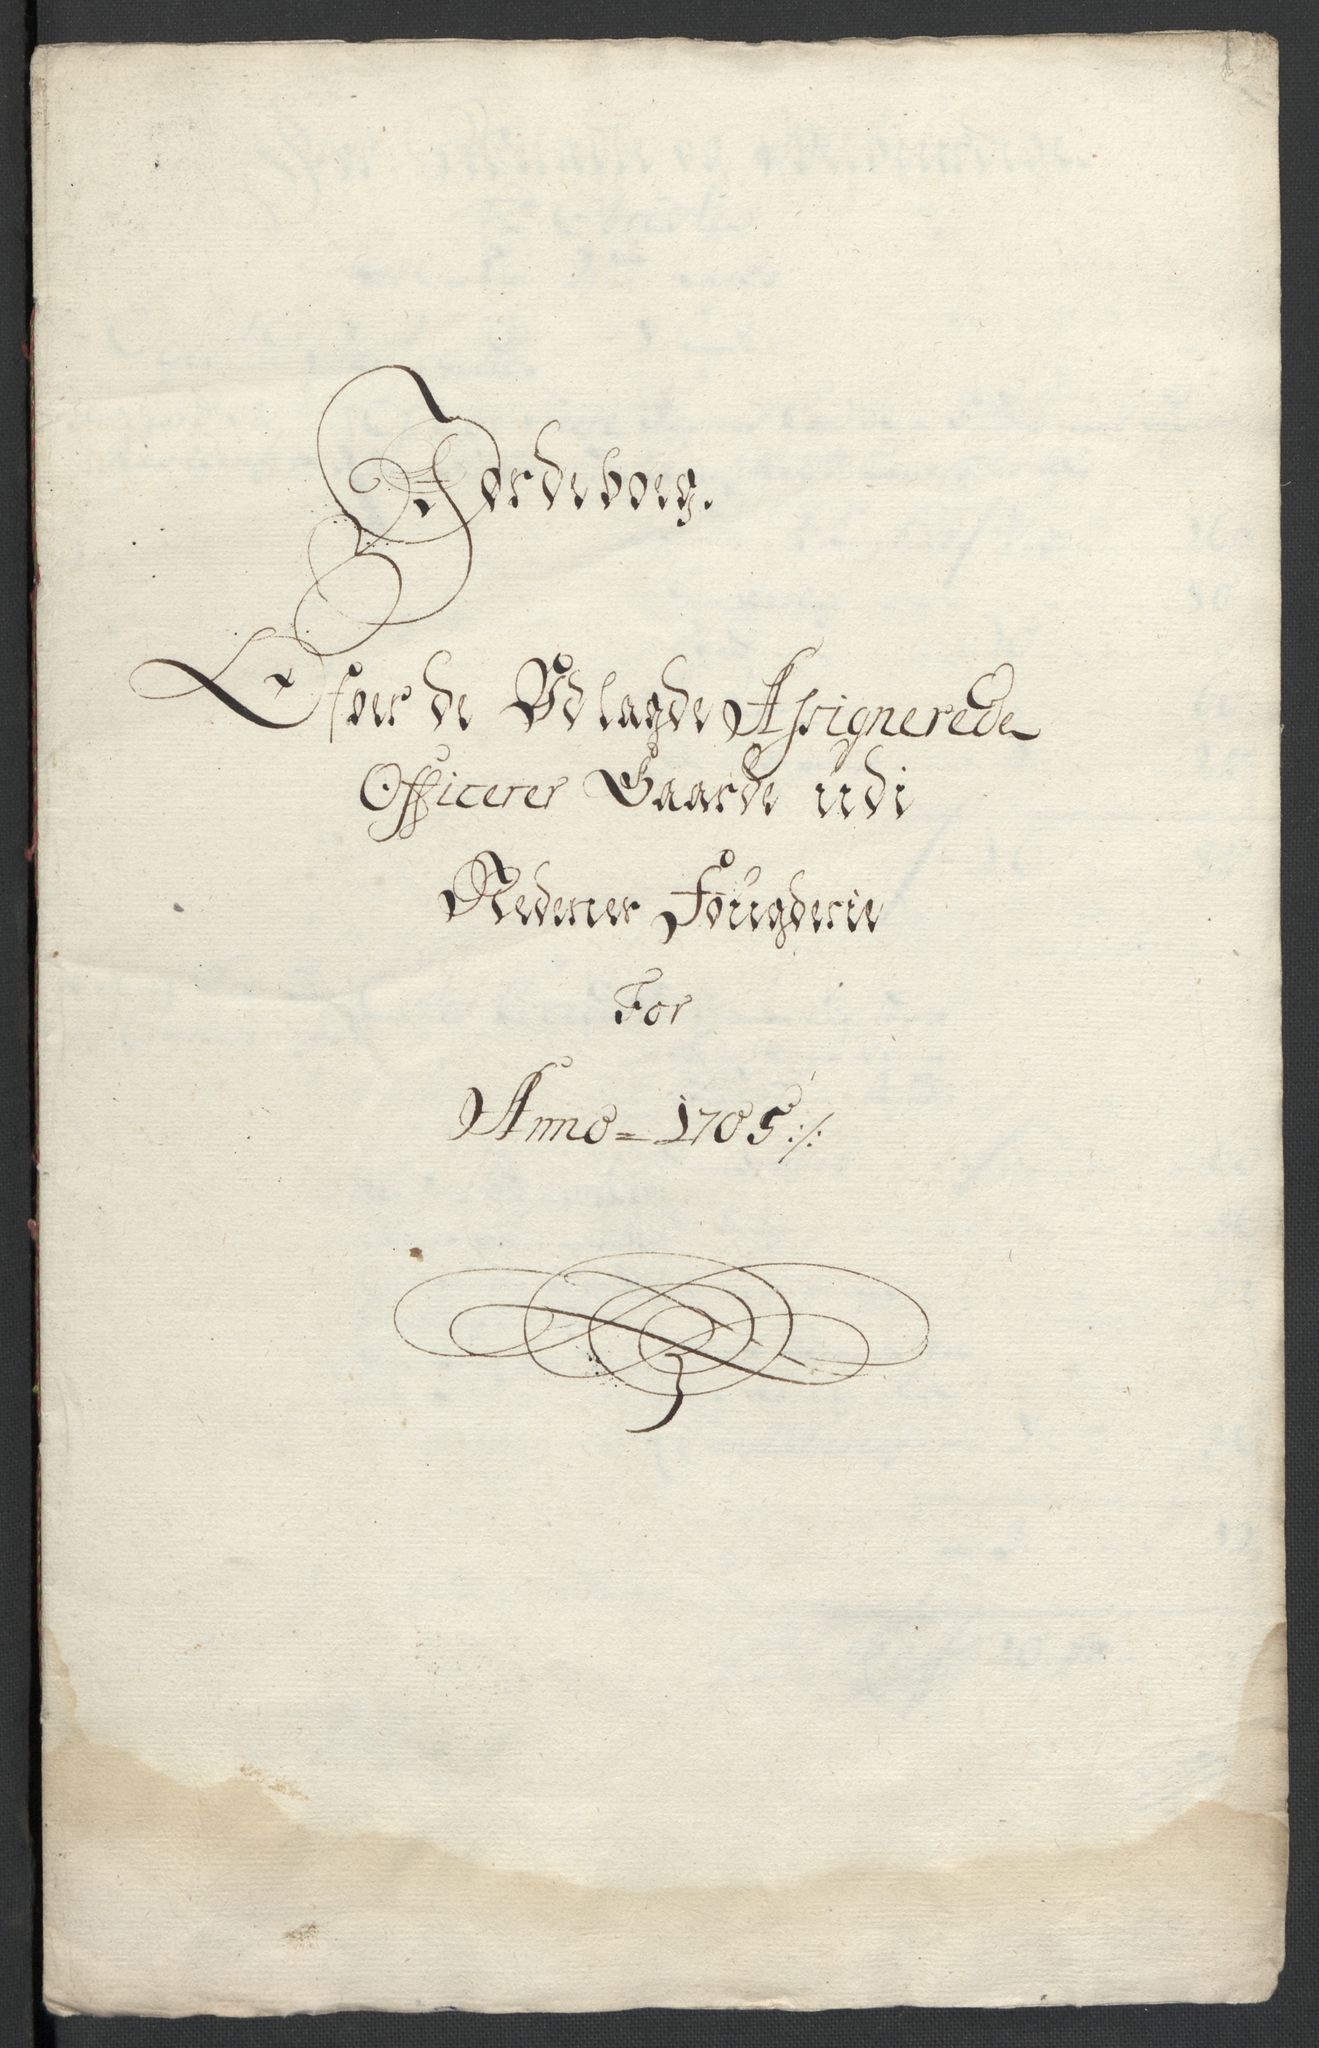 Jordeboeg.
Ofver de Udlagde Assignerede
Officerer Gaarde udi
Nedenes Fougderie
For
Anno = 1705 ./.